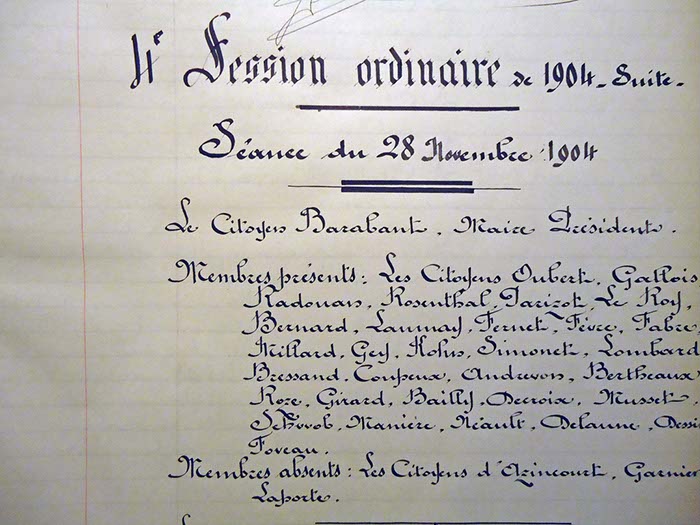 4e Session ordinaire de 1904 - Suite -
Séance du 28 Novembre 1904
Le Citoyen Barabant, Maire Président.
Membres présents : Les Citoyens Oubert, Gallois
Radouan, Rosenthal, Parizot, Le Roy,
Bernard, Launay, Fernet, Fèvre, Fabre,
Millard, Gey, Kohn, Simonet, Lombard
Bressand, Coupeux, Andrevon, Bertheaux
Roze, Girard, Bailly, Decroix, Musset,
Manière, Néault, Delaune, Dessi
Foveau.
Membres absents : Les Citoyens d'Azincourt, Garnier
Laporte.